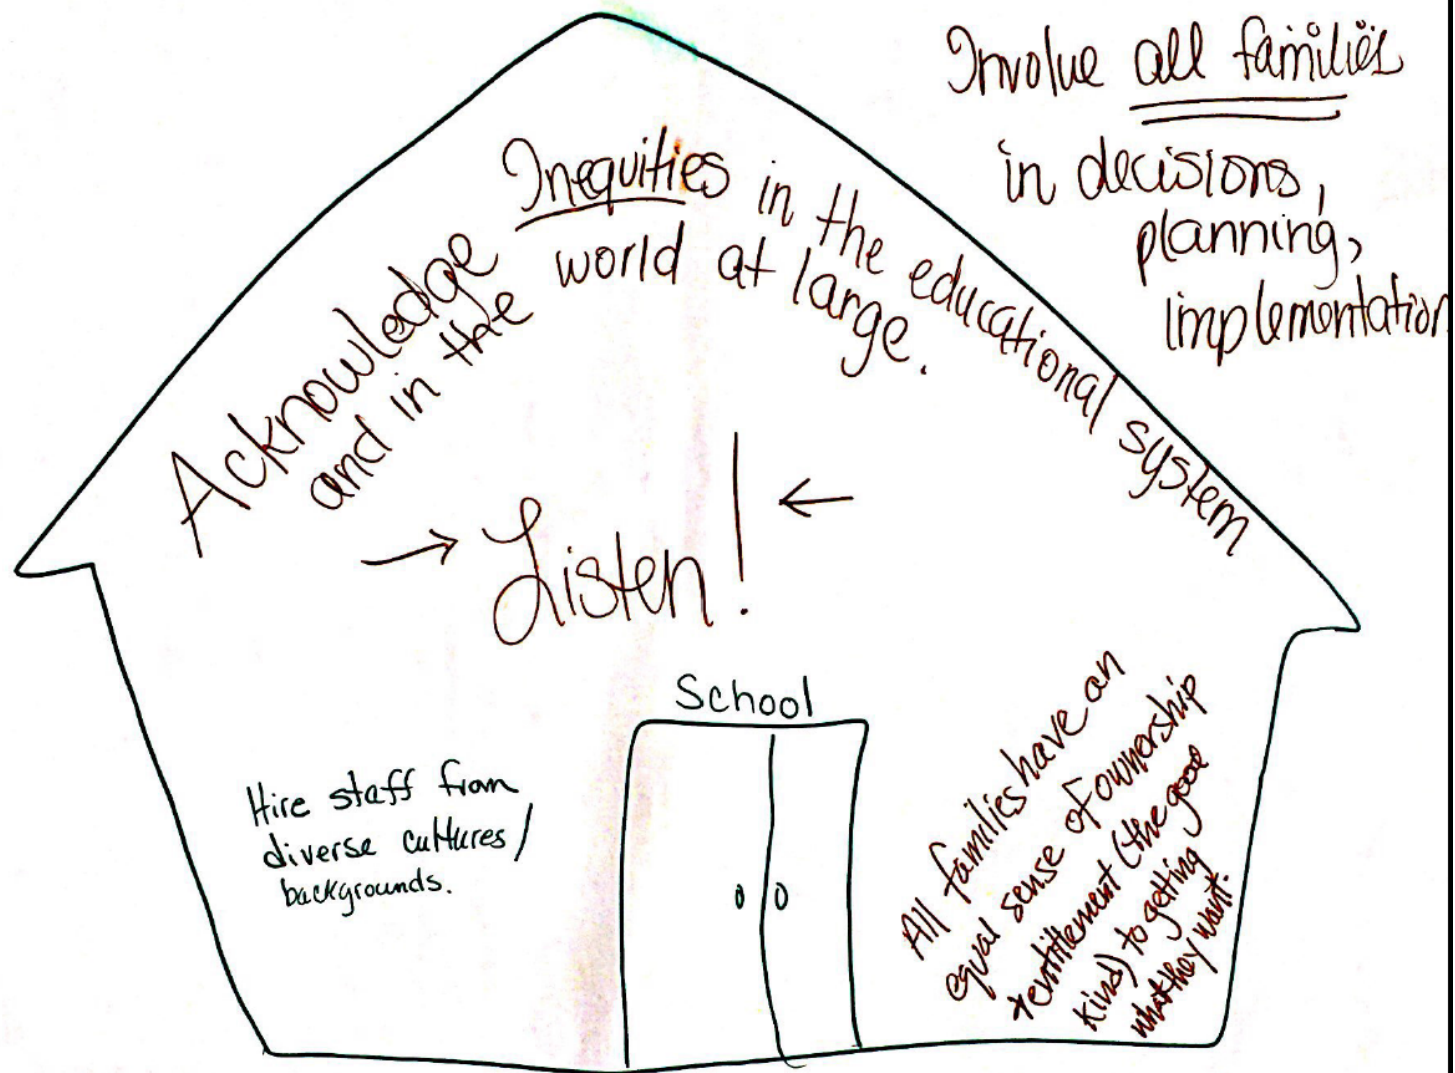 Involve all families
in decisions,
planning,
implementation
Acknowledge Inequities in the educational system
and in the world at large.
→ Listen! ←
School
Hire staff from
diverse cultures/
backgrounds.
All families have an
equal sense of ownership
+entitlement (the good
kind) to getting
what they want.